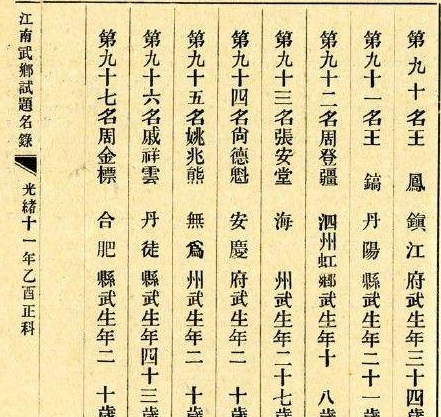 第九十名王　鳳　鎮江府武生年三十四歲
第九十一名王　鎬　丹陽縣武生年二十一歲
第九十二名周登疆　泗州虹鄉武生年十　八歲
第九十三名張安堂　海　州武生年二十七歲
第九十四名尙德魁　安慶府武生年二　十歲
第九十五名姚兆熊　無爲州武生年二　十歲
第九十六名戚祥雲　丹徒縣武生年四十三歲
第九十七名周金標　合肥縣武生年二　十歲
江南武鄉試題名錄　光緒十一年乙酉正科